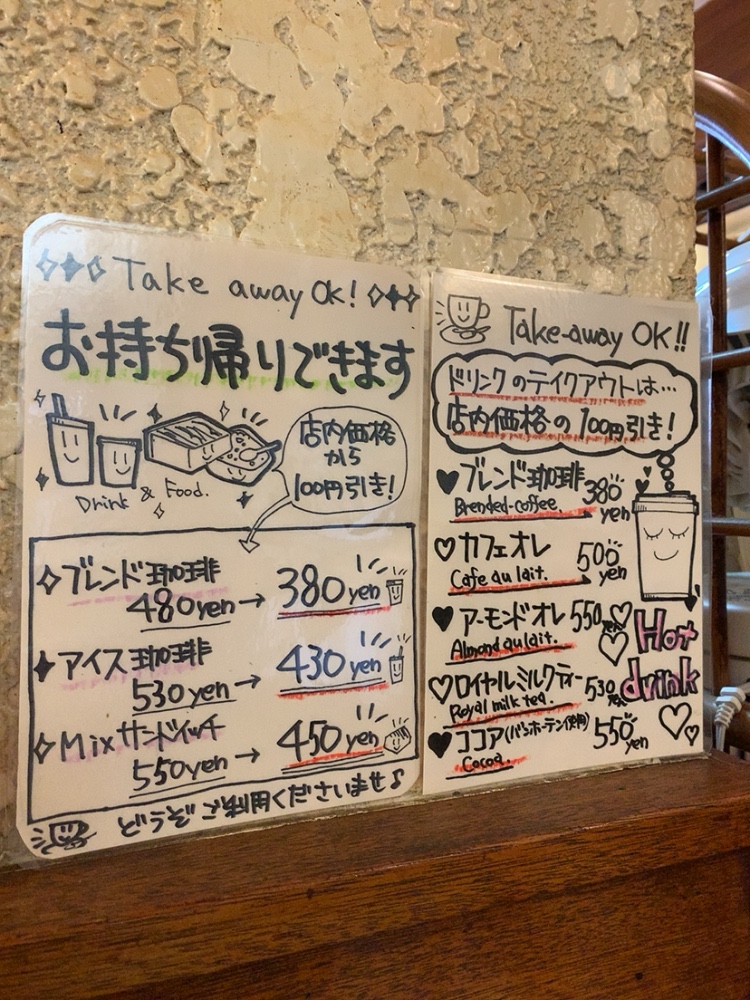 Take away OK!
お持ち帰りできます
Drink & Food.
店内価格
から
100円引き!
ブレンド珈琲
480yen→ 380yen
アイス珈琲
530yen→ 430yen
Mixサンドイッチ
550yen→ 450yen
どうぞご利用くださいませ♪
Take-away OK!!
ドリンクのテイクアウトは…
店内価格の100円引き!
♥ブレンド珈琲 380yen
Brended-coffee.
♡カフェオレ 500yen
Cafe au lait.
♥アーモンドオレ 550yen
Almond au lait.
♡ロイヤルミルクティー 530yen
Royal milk tea.
♥ココア(バンホーテン使用) 550yen
Cocoa.
Hot
drink